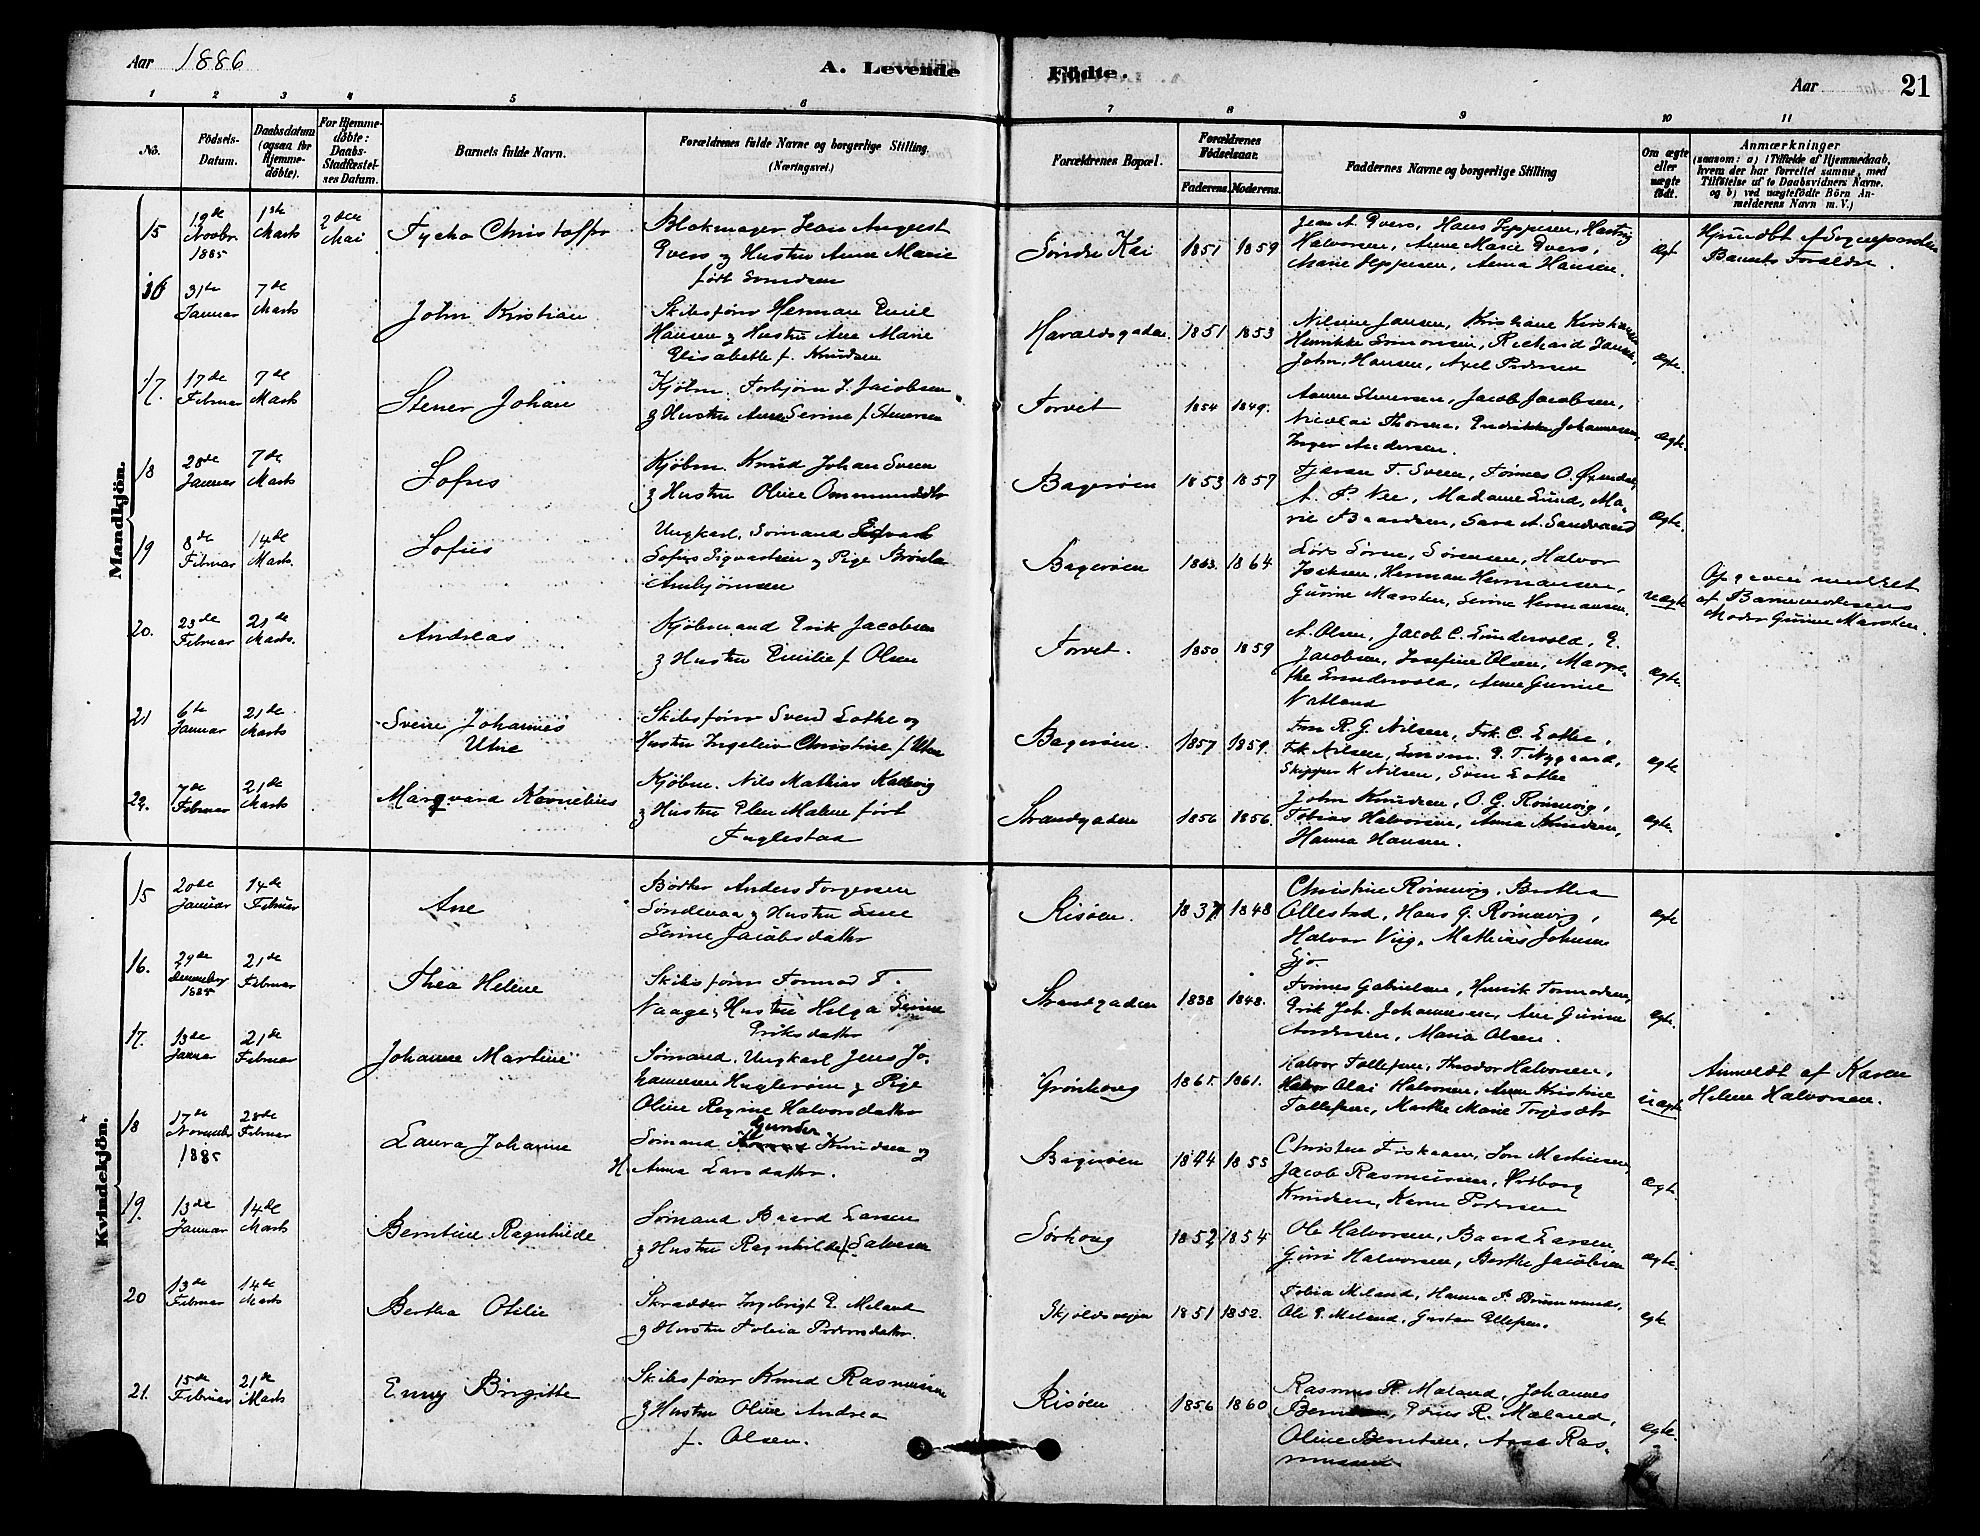 Aar 1886
A. Levende Födte.
Aar
21
1 2 3 4 5 6 7 8 9 10 11
Nö.
Födsels-Datum.
Daabsdatum (ogsaa for Hjemme-döbte).
For Hjemme-döbte: Daabs-Stadfæstel-ses Datum.
Barnets fulde Navn.
Forældrenes fulde Navne og borgerlige Stilling
(Næringsvei.)
Forældrenes Bopæl.
Forældrenes Födselsaar.
Faderens. Moderens.
Faddernes Navne og borgerlige Stilling
Om ægte eller uægte födt.
Anmærkninger
(saasom: a) i Tilfælde af Hjemmedaab, hvem der har forrettet samme, med Tilföielse af to Daabsvidners Navne. og b) ved uægtefödte Börn An-melderens Navn m. V.)
Mandkjön.
15 19de Novbr. 1885 1ste Marts 2den Mai
Tycho Christoffer
Blokmager Jean August
Evers og Hustru Anne Marie
født
Søndre Kai 1851 1859
Jean A. Evers, Hans Jeppesen, Hartvig
Halvorsen, Anne Marie Evers,
Marie Jeppesen, Anna Hansen.
Barnets Forældre.
16 31te Januar 7de Marts
John Kristian
Skibsfører Herman Emil
Hansen og Hustru Ane Marie
Elisabeth f. Knudsen
Haraldsgaden 1851 1853
Henrikke Simonsen, Richard Jansen,
John Hansen, Axel Pedersen
ægte.
17. 17de Februar 7de Marts
Stener Johan
Kjøbm. Torbjørn J. Jacobsen
& Hustru Anne Serine f. Stenersen
Torvet 1854 1849.
Jacob Jacobsen,
Nicolai Thorsen, Johannesen,
Inger Andersen.
ægte.
18 28de Januar 7de Marts
Sofus
Kjøbm. Knud Johan Sveen
& Hustru Oline Ommundsdtr
Bagerøen 1853 1857
A. P. Nee, Madame Lund, Ma-
rie Baardsen, Sara A. Sandvand
ægte.
19 8de Februar 14de Marts
Sofus
Ungkarl, Sømand
Sofus Sigvartsen og Pige
Arnbjørnsen
Bagerøen 1863. 1864
Lars Sørine, Sørensen, Halvor
Isaksen, Herman Hermansen,
Gurine Marsten, Serine Hermansen.
uægte
Opgaven meddelt
af Barnemoderens
Moder Gurine Marsten.
20. 23de Februar 21de Marts
Andreas
Kjøbmand Erik Jacobsen
& Hustru Emilie f. Olsen
Torvet. 1850 1859
A. Olsen, Jacob C. Sundervold, E.
Jacobsen, Josefine Olsen, Margre-
the Sundervold, Anne Gurine
Natland
ægte.
21 6te Januar 21de Marts
Svein Johannes
Utne
Skibsfører Svend Lothe og
Hustru Ingeleiv Christine f. Utne
Bagerøen. 1857 1859.
Fru R. G. Nilsen, Frk. C. Lothe,
Frk. Nilsen, E. T. Nygaard,
Skipper K. Nilsen, Sven Lothe
ægte
22. 7de Februar 21de Marts
Marqvard Kornelius
Kjøbm. Nils Mathias Kallevig
& Hustru Elen Malene født
Fuglestad
Strandgaden 1856 1856.
John Knudsen, O. G. Rønnevig,
Tobias Halvorsen, Anna Knudsen,
Hanna Hansen.
ægte.
Kvindekjön.
15 20de Januar 14de Februar
Ane
Bødker Anders Torgersen
Søndenaa & Hustru Lene
Serine Jacobsdatter
Risøen. 1837 1848
Christine Rønnevig, Berthea
Ollestad, Hans G. Rønnevig,
Halvor Viig, Mathias Johnsen
Gjo.
ægte
16. 29de Decemebr 1885 21de Februar
Thea Helene
Skibsfører Tormod T.
Naage & Hustru Helga Serine
Eriksdatter
Strandgaden 1838 1848.
Tønnes Gabrielsen, Henrik Tormodsen,
Erik Joh. Johannesen, Ane Gurine
Andersen, Maria Olsen.
ægte.
17. 13de Januar 21de Februar
Johanne Martine
Sømand, Ungkarl Jens Jo-
hannesen Huglerøen & Pige
Oline Regine Halvorsdatter
Grønhoug 1865. 1861.
Halvor Tollefsen, Theodor Halvorsen,
Olai Halvorsen, Anne Kristine
Tollefsen, Marthe Marie Torjesdtr
uægte
Anmeldt af Karen
Helene Halvorsen.
18 17de Novembr 1885 28de Februar
Laura Johanne
Sømand Gunder Knudsen og
H. Anna Larsdatter.
Bagerøen 1844 1855
Christine Fiskaaen, Jon Martinsen,
Jacob Rasmussen, Vibborg
Knudsen, Karen Pedersen
ægte.
19. 13de Januar 14de Marts
Berntine Ragnhilde
Sømand Baard Larsen
& Hustru Ragnhilde f. Salvesen
Sørhoug 1852 1854
Ole Halvorsen, Baard Larsen,
Guri Halvorsen, Berthe Jacobsen
ægte.
20 13de Februar 14de Marts
Bertha Otilie
Skrædder Ingebrigt E. Meland
& Hustru Tobia Pedersdatter.
Skjoldsvejen 1851 1852.
Tobia Meland,
Ole E. Meland, Gustav Ellefsen.
ægte
21. 15de Februar 21de Marts
Enny Birgitte
Skibsfører Knud Rasmussen
& Hustru Oline Andrea
f. Olsen.
Risøen 1856 1860
Rasmus R. Maland, Johannes
R. Mæland,
Oline Berntsen, Anne Ras-
mussen
ægte.